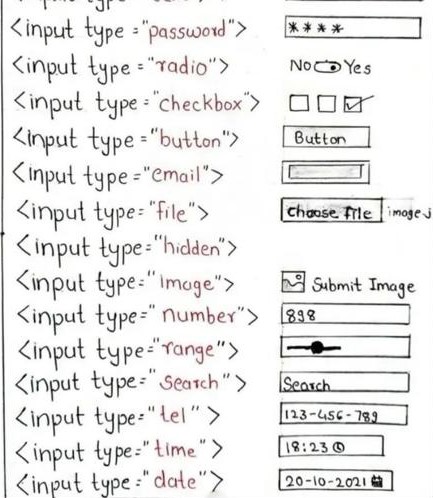 <input type="password"> ****
<input type="radio"> No Yes
<input type="checkbox">
<input type="button"> Button
<input type="email">
<input type="file"> choose file image.j
<input type="hidden">
<input type="image"> Submit Image
<input type="number"> 898
<input type="range">
<input type="search"> Search
<input type="tel"> 123-456-789
<input type="time"> 18:23
<input type="date"> 20-10-2021